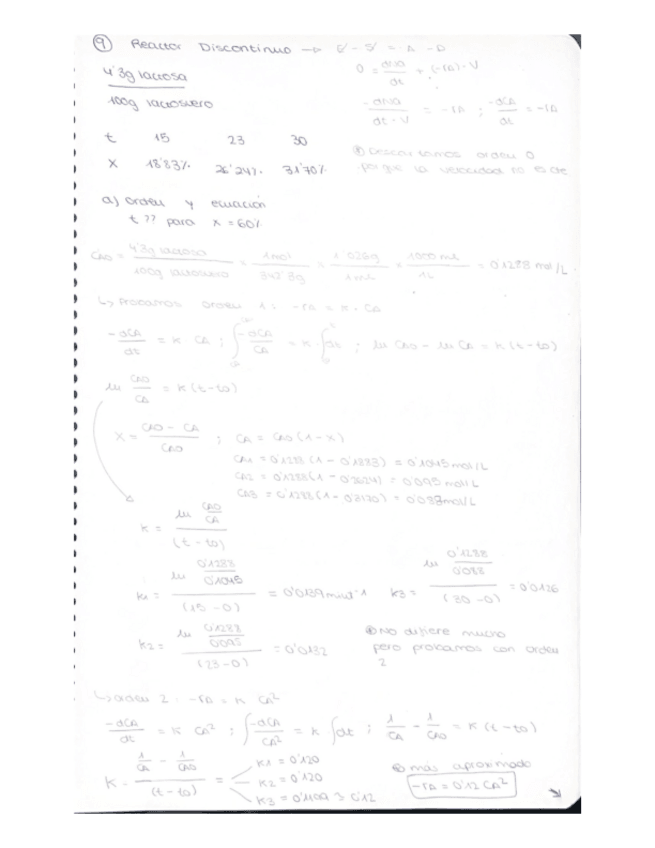 ⑨ Reactor Discontinuo → E - S = A - D
4'3g lactosa
100g lactosuero
0 = dNA/dt + (-rA)·V
-dNA/dt·V = -rA ; -dCA/dt = -rA
t 15 23 30
X 18'83% 26'24% 31'70%
⊛ Descartamos orden 0
porque la velocidad no es cte
a) orden y ecuación
t ?? para x = 60%
CA0 = 4'3g lactosa/100g lactosuero = 1mol/342'3g = 1'026g/1mL × 1000mL/1L = 0'1288 mol/L
↳ Probamos orden 1: -rA = K·CA
-dCA/dt = K CA ; ∫ -dCA/CA = K·∫dt ; ln CA0 - ln CA = K(t-t0)
ln CA0/CA = K(t-t0)
X = CA0 - CA/CA0 ; CA = CA0(1-X)
CA1 = 0'1288(1 - 0'1883) = 0'1045 mol/L
CA2 = 0'1288(1 - 0'2624) = 0'095 mol/L
CA3 = 0'1288(1 - 0'3170) = 0'088 mol/L
K = ln CA0/CA / (t-t0)
K1 = ln 0'1288/0'1045 / (15-0) = 0'0139 min^-1
K3 = ln 0'1288/0'088 / (30-0) = 0'0126
K2 = ln 0'1288/0'095 / (23-0) = 0'0132
⊛ No difiere mucho
pero probamos con orden
2
↳ orden 2: -rA = K CA²
-dCA/dt = K CA² ; ∫ -dCA/CA² = K ∫dt ; 1/CA - 1/CA0 = K(t-t0)
K · 1/CA - 1/CA0 / (t-t0) =
K1 = 0'120
K2 = 0'120
K3 = 0'1199 ≈ 0'12
⊛ más aproximado
-rA = 0'12 CA²